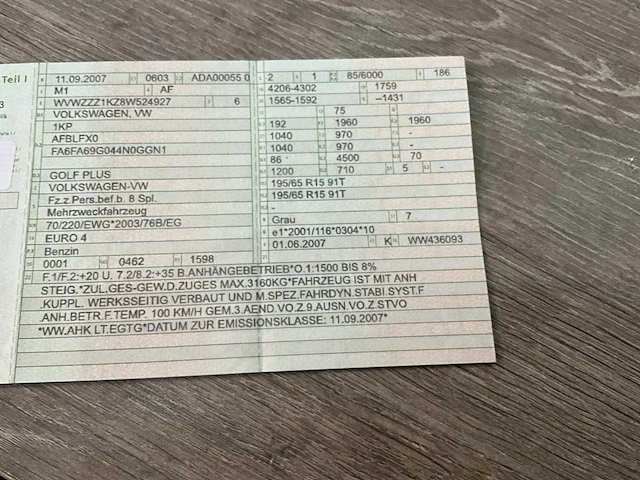 Teil I
11.09.2007 0603 ADA00055 0
M1 AF
WVWZZZ1KZ8W524927 6
VOLKSWAGEN, VW
1KP
AFBLFX0
FA6FA69G044N0GGN1
GOLF PLUS
VOLKSWAGEN-VW
Fz.z.Pers.bef.b. 8 Spl.
Mehrzweckfahrzeug
70/220/EWG*2003/76B/EG
EURO 4
Benzin
0001 0462 1598
2 1 85/6000 186
4206-4302 1759
1565-1592 –1431
75
192 1960 1960
1040 970 -
1040 970 -
86 4500 70
1200 710 5 -
195/65 R15 91T
195/65 R15 91T
-
Grau 7
e1*2001/116*0304*10
01.06.2007 K WW436093
F.1/F.2:+20 U. 7.2/8.2:+35 B.ANHÄNGEBETRIEB*O.1:1500 BIS 8%
STEIG.*ZUL.GES-GEW.D.ZUGES MAX.3160KG*FAHRZEUG IST MIT ANH
.KUPPL. WERKSSEITIG VERBAUT UND M.SPEZ.FAHRDYN.STABI.SYST.F
.ANH.BETR.F.TEMP. 100 KM/H GEM.3.AEND.VO.Z.9.AUSN.VO.Z.STVO
*WW.AHK LT.EGTG*DATUM ZUR EMISSIONSKLASSE: 11.09.2007*